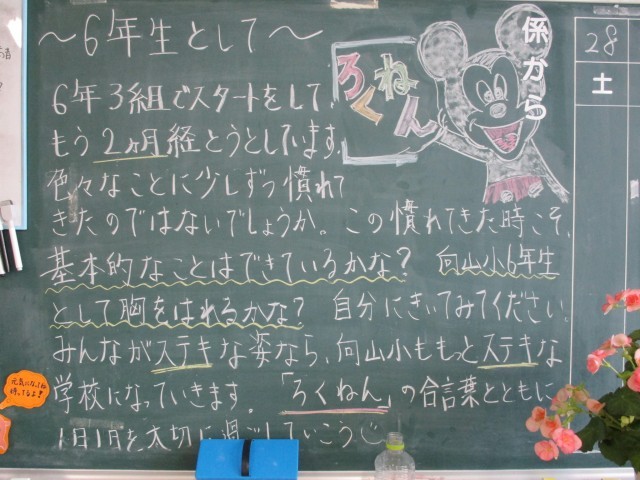 ～6年生として～
係から
28
土
ろくねん
6年3組でスタートをして、
もう2ヶ月経とうとしています。
色々なことに少しずつ慣れて
きたのではないでしょうか。この慣れてきた時こそ、
基本的なことはできているかな？ 向山小6年生
として胸をはれるかな？ 自分にきいてみてください。
みんながステキな姿なら、向山小ももっとステキな
学校になっていきます。「ろくねん」の合言葉とともに
1日1日を大切に過ごしていこう
元気になって